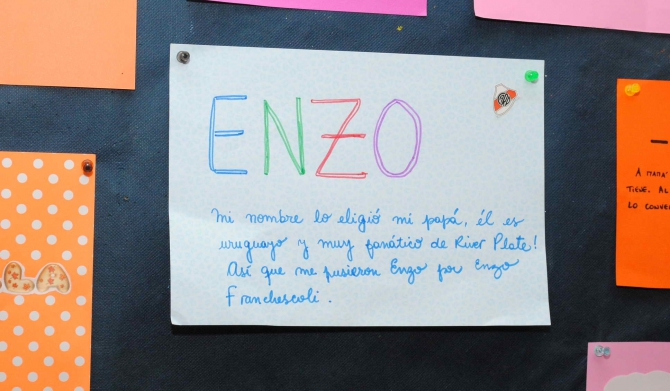 ENZO
Mi nombre lo eligió mi papá, él es
uruguayo y muy fanático de River Plate!
Así que me pusieron Enzo por Enzo
Franchescoli.
LA
A MAMÁ
TIENE. AL
LO CONVE